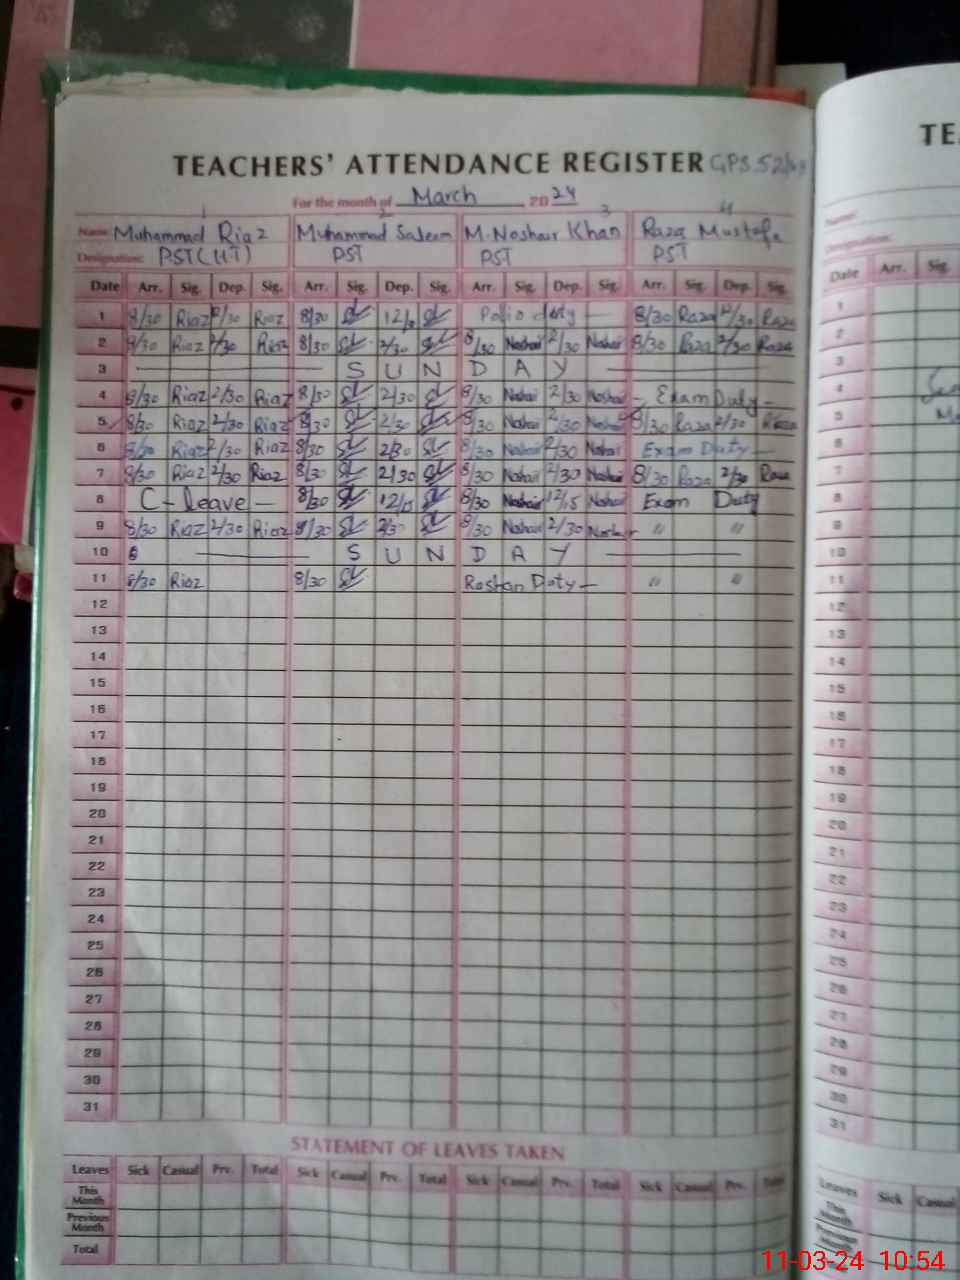 TEACHERS' ATTENDANCE REGISTER GPS 52/
For the month of March 2024
1 2 3 4
Name: Muhammad Riaz Muhammad Saleem M. Noshair Khan Raza Mustafa
Designation: PST (HT) PST PST PST
Date Arr. Sig. Dep. Sig. Arr. Sig. Dep. Sig. Arr. Sig. Dep. Sig. Arr. Sig. Dep. Sig.
1 8/30 Riaz 12/30 Riaz 8/30 Polio duty — 8/30 Raza 12/30 Raza
2 8/30 Riaz 2/30 Riaz 8/30 2/30 8/30 Noshair 2/30 Noshair 8/30 Raza 2/30 Raza
3 — S U N D A Y —
4 8/30 Riaz 2/30 Riaz 8/30 2/30 8/30 Noshair 2/30 Noshair - Exam Duty -
5 8/30 Riaz 2/30 Riaz 8/30 2/30 8/30 Noshair 2/30 Noshair 8/30 Raza 2/30 Raza
6 8/30 Riaz 2/30 Riaz 8/30 2/30 8/30 Noshair 2/30 Noshair Exam Duty —
7 8/30 Riaz 2/30 Riaz 8/30 2/30 8/30 Noshair 2/30 Noshair 8/30 Raza 2/30 Raza
8 C - leave - 8/30 12/15 8/30 Noshair 12/15 Noshair Exam Duty
9 8/30 Riaz 2/30 Riaz 8/30 2/30 8/30 Noshair 2/30 Noshair " "
10 — S U N D A Y —
11 8/30 Riaz 8/30 Roshan Duty — " "
12
13
14
15
16
17
18
19
20
21
22
23
24
25
26
27
28
29
30
31
STATEMENT OF LEAVES TAKEN
Leaves Sick Casual Prv. Total Sick Casual Prv. Total Sick Casual Prv. Total Sick Casual Prv. Total
This Month
Previous Month
Total
TE
Name:
Designation:
Date Arr. Sig.
1
2
3
4
5
6
7
8
9
10
11
12
13
14
15
16
17
18
19
20
21
22
23
24
25
26
27
28
29
30
31
Leaves Sick Casual
This Month
Previous Month
Total
11-03-24 10:54